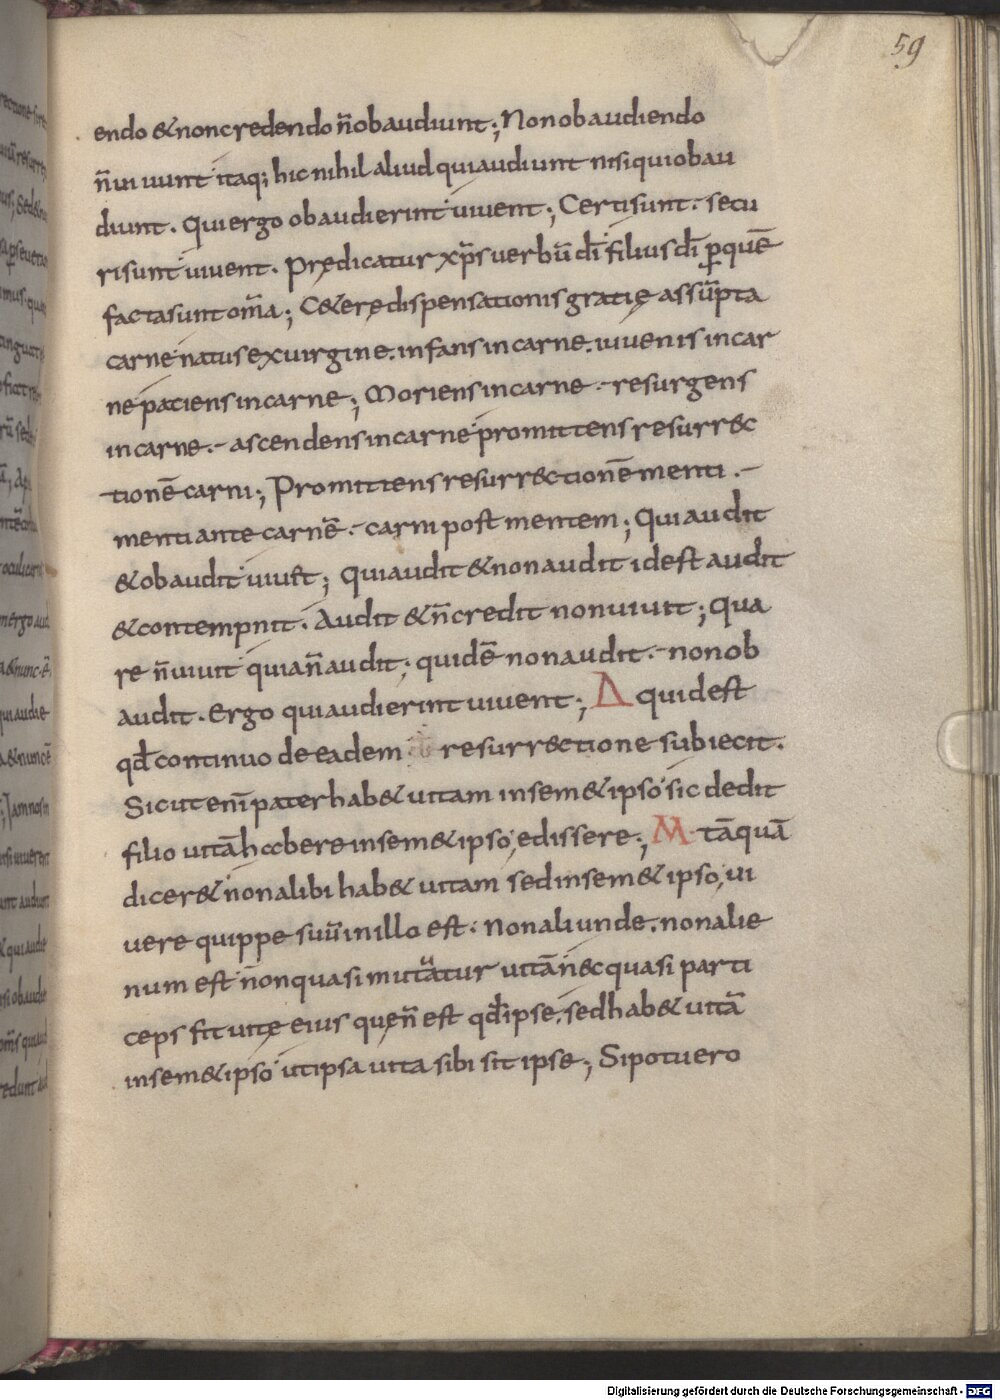 59
endo & non credendo n̄ obaudiunt; Non obaudiendo
n̄ uiuunt itaq; hic nihil aliud qui audiunt nisi qui obau
diunt. Qui ergo obaudierint uiuent; Certi sunt. secu
ri sunt uiuent. Prędicatur xp̄s uerbū dī filius dī ꝑ quē
facta sunt om̄a; C&erę dispensationis gratię assūpta
carne natus ex uirgine. infans in carne. iuuenis in car
ne patiens in carne; Moriens in carne. resurgens
in carne. ascendens in carne promittens resurr&c
tionē carni; Promittens resurr&ctionē menti.
menti ante carnē. carni post mentem; Qui audit
& obaudit uiuit; Qui audit & non audit id est audit
& contempnit. Audit & n̄ credit non uiuit; Qua
re n̄ uiuit quia n̄ audit; quidē non audit. non ob
audit. Ergo qui audierint uiuent; Δ quid est
qđ continuo de eadem resurr&ctione subiecit.
Sicut enī pater hab& uitam in sem&ipso sic dedit
filio uitā habere in sem&ipso, edissere; M tāquā
dicer& non alibi hab& uitam sed in sem&ipso, ui
uere quippe suū in illo est. Non aliunde. non alie
num est n̄ on quasi mutuatur uitā n&c quasi parti
ceps fit uitę eius quę n̄ est qđ ipse. sed hab& uitā
in sem&ipso ut ipsa uita sibi sit ipse; Si potuero
Digitalisierung gefördert durch die Deutsche Forschungsgemeinschaft - DFG